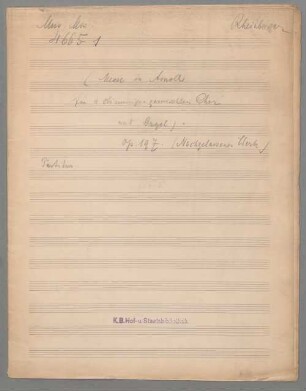 Mus. Mss. Rheinberger
4665
(Messe in Amoll
für 4 stimmigen gemischten Chor
mit Orgel) -
Op. 197. (Nachgelassenes Werk)
Partitur
K.B.Hof-u.Staatsbibliothek